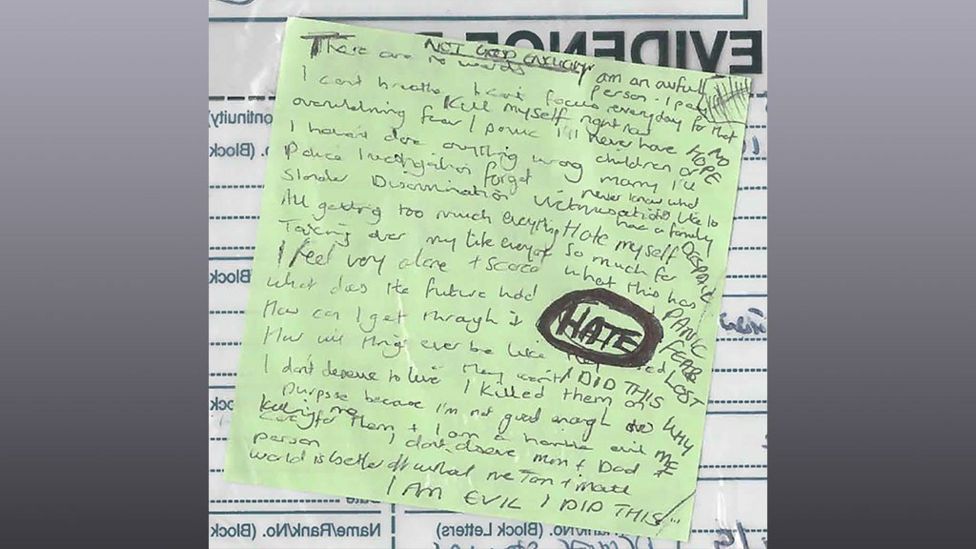 NOT GOOD ENOUGH
There are no words I am an awful person. I pay
I cant breathe I cant focus everyday for that
Kill myself right now
overwhelming fear / panic I'll never have NO HOPE
children or
I havent done anything wrong marry I'll
never know what
Police Investigation forget
Slander Discrimination Victimisation like to
have a family
All getting too much everything Hate myself DESPAIR
Taking over my life everyone so much for
I feel very alone + scared what this has
What does the future hold PANIC
HATE
How can I get through it FEAR
How will things ever be like LOST
they I DID THIS
I dont deserve to live I killed them on WHY
purpose because I'm not good enough to ME
care for them + I am a horrible evil
person I dont deserve mum + Dad
world is better off without me
I AM EVIL I DID THIS
EVIDENCE
(Block
No. (Block
(Block
Name/Rank/No. (Block
(Block Letters)